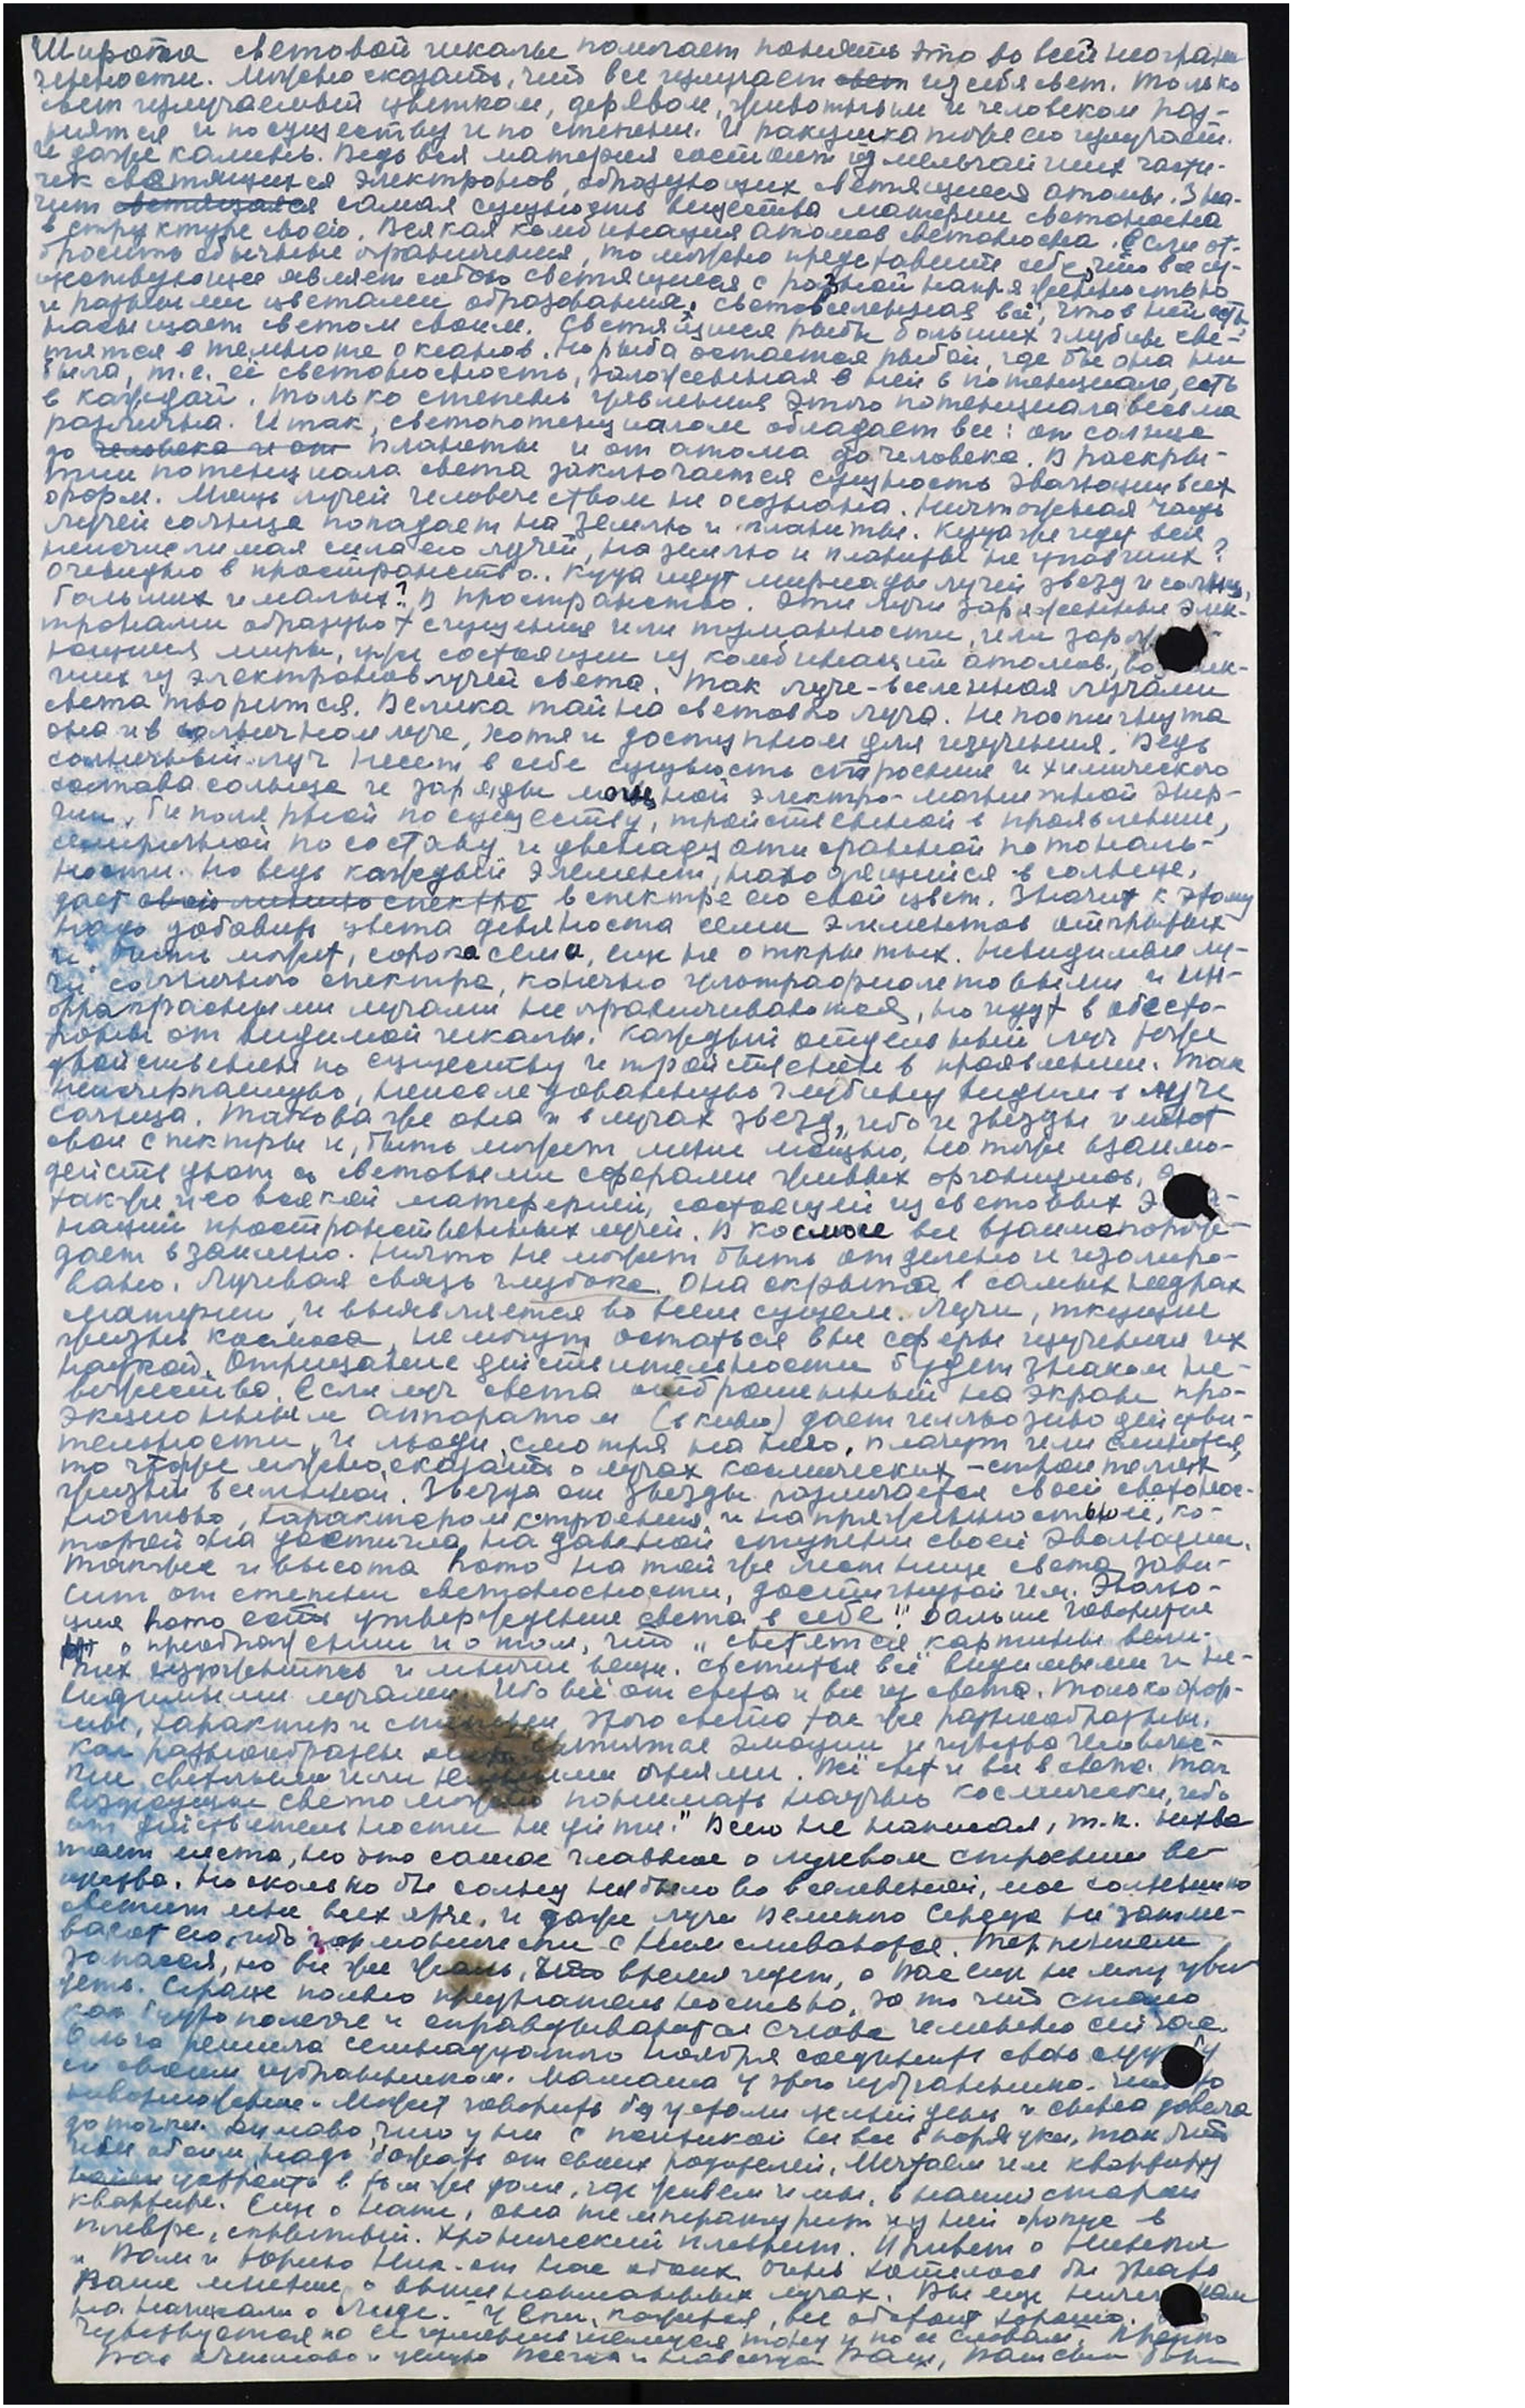 Широта световой шкалы помогает понять это во всей неограни-
ченности. Можно сказать, что все излучает свет из себя свет. Только
свет излучаемый цветком, деревом, животным и человеком раз-
нятся и по существу и по степени. И ракушка тоже его излучает.
И даже камень. Ведь вся материя состоит из мельчайших части-
чек светящихся электронов, образующих светящиеся атомы. Зна-
чит светящаяся самая сущность вещества материи светоносна
в структуре своей. Всякая комбинация атомов светоносна. Если от-
бросить обычные ограничения, то можно представить себе, что все су-
ществующее являет собою светящиеся с разной напряженностью
и разными цветами образования. Световселенная всё, что в ней есть,
насыщает светом своим. Светящиеся рыбы больших глубин све-
тятся в темноте океанов. Но рыба остается рыбой, где бы она ни
была, т.е. её светоносность, заложенная в ней в потенциале, есть
в каждой. Только степень явления этого потенциала весьма
различна. Итак, светопотенциалом обладает все: от солнца
до человека и от планеты и от атома до человека. В раскры-
тии потенциала света заключается сущность эволюции всех
форм. Мощь лучей человечеством не осознана. Ничтожная часть
лучей солнца попадает на Землю и планеты. Куда же идет вся
неисчислимая сила его лучей, на землю и планеты не упавших?
Очевидно в пространство. Куда идут мириады лучей звезд и солнц,
больших и малых? В пространство. Эти лучи заряженные элек-
тронами образуют сгущения или туманности, или
миры, уже состоящие из комбинаций атомов, возник-
ших из электронов лучей света. Так луче-вселенная лучами
света творится. Велика тайна светового луча. Непостигнута
она и в солнечном луче, хотя и доступном для изучения. Ведь
солнечный луч несет в себе сущность строения и химического
состава солнца и заряды мощной электро-магнитной энер-
гии, биполярной по существу, тройственной в проявлении,
семеричной по составу и двенадцатигранной по тональ-
ности. Но ведь каждый элемент, находящийся в солнце,
дает свою линию спектра в спектре его свой цвет. Значит к этому
надо добавить цвета девяноста семи элементов открытых
и, быть может, сорока семи, еще не открытых. Невидимые лу-
чи солнечного спектра, конечно ультрафиолетовыми и ин-
фракрасными лучами не ограничиваются, но идут в обе сто-
роны от видимой шкалы. Каждый отдельный луч тоже
двойственен по существу и тройственен в проявлении. Так
неисчерпаемую, неисследованную глубину видим в луче
солнца. Такова же она и в лучах звезд, ибо и звезды имеют
свои спектры и, быть может, менее мощно, но тоже взаимо-
действуют со световыми сферами живых организмов, а
также и со всякой материей, состоящей из световых
пространственных лучей. В космосе все взаимопорож-
дает взаимно. Ничто не может быть отделено и изолиро-
вано. Лучевая связь глубока. Она скрыта в самых недрах
материи и выявляется во всем сущем. Лучи, ткущие
жизнь космоса, не могут остаться вне сферы изучения их
наукой. Отрицание действительности будет знаком не-
вежества. Если луч света отброшенный на экран про-
экционным аппаратом (в кино) дает иллюзию действи-
тельности, и люди, смотря на него, плачут или смеются,
то что же можно сказать о лучах космических – строителях
жизни вселенной. Звезда от звезды разнится своей светонос-
ностью, характером строения и напряженностью её, ко-
торой она достигла на данной ступени своей эволюции.
Также и высота homo на той же лестнице света зави-
сит от степени светоносности, достигнутой им. Эволю-
ция homo есть утверждение света в себе!" Дальше говорится
о преображении и о том, что „светятся картины вели-
ких художников и многие вещи. Светится всё видимыми и не-
видимыми лучами. Ибо всё от света и все из света. Только фор-
мы, характер и степени этого света так же разнообразны,
как разнообразны эмоции и чувства человече-
ские светлыми или огнями. Всё свет и все в свете. Так
света можно понимать научно космически, ибо
от действительности не уйти." Всего не написал, т.к. нехва-
тает места, но это самое главное о лучевом строении ве-
щества. Но сколько бы солнц ни было во вселенной, мое солнышко
светит мне всех ярче, и даже лучи Великого Сердца не затме-
вают его, ибо гармонически с Ним сливаются. Терпением
запасся, но все же жаль, что время идет, а Вас еще не могу уви-
деть. Сердце полно признательностью, за то что стало
как будто полегче и оправдываются слова
Ольга решила семнадцатого ноября соединить свою судьбу
со своим избранником. Мамаша у этого избранника
невозможная. Может говорить без устали целый день и
до точки. Думаю, что у ней с психикой не все в порядке, так что
им обоим надо бежать от своих родителей. Мечтаем им квартиру
устроить в том же доме, где живем и мы, в нашей старой
квартире. Еще о Нате, она температурит и у ней в
плевре, спитый. Хронический плеврит. Привет
Вам и от нас обоих. Очень хотелось бы знать
Ваше мнение о лучах. Вы еще ничего нам
не написали о Людe. У Ени, кажется, все обстоит хорошо.
Чувствуется по ее тону и по ее словам. Крепко
Вас обнимаю и целую Всегда и навсегда Ваш,